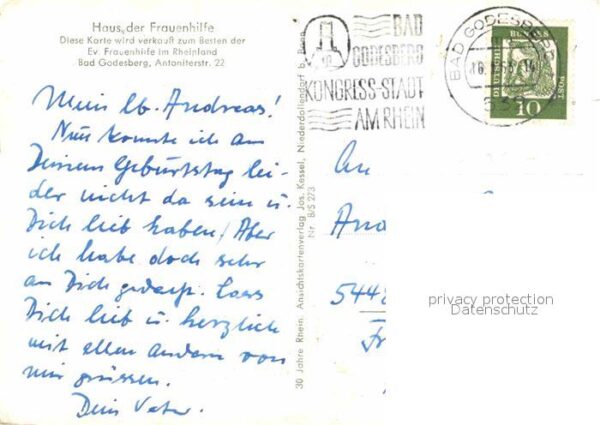 Haus der Frauenhilfe
Diese Karte wird verkauft zum Besten der
Ev. Frauenhilfe im Rheinland
Bad Godesberg, Antoniterstr. 22
Mein lb. Andreas!
Nun konnte ich an
Deinem Geburtstag lei-
der nicht da sein u.
Dich lieb haben! Aber
ich habe doch sehr
an Dich gedacht. Lass
Dich lieb u. herzlich
mit allen Andern von
mir grüssen.
Dein Vater.
30 Jahre Rhein. Ansichtskartenverlag Jos. Kessel, Niederdollendorf b. Bonn
Nr. B/S 273
BAD
GODESBERG
KONGRESS-STADT
AM RHEIN
BAD GODESBERG
DEUTSCHE BUNDESPOST
10
An
And
544
Fr
privacy protection
Datenschutz